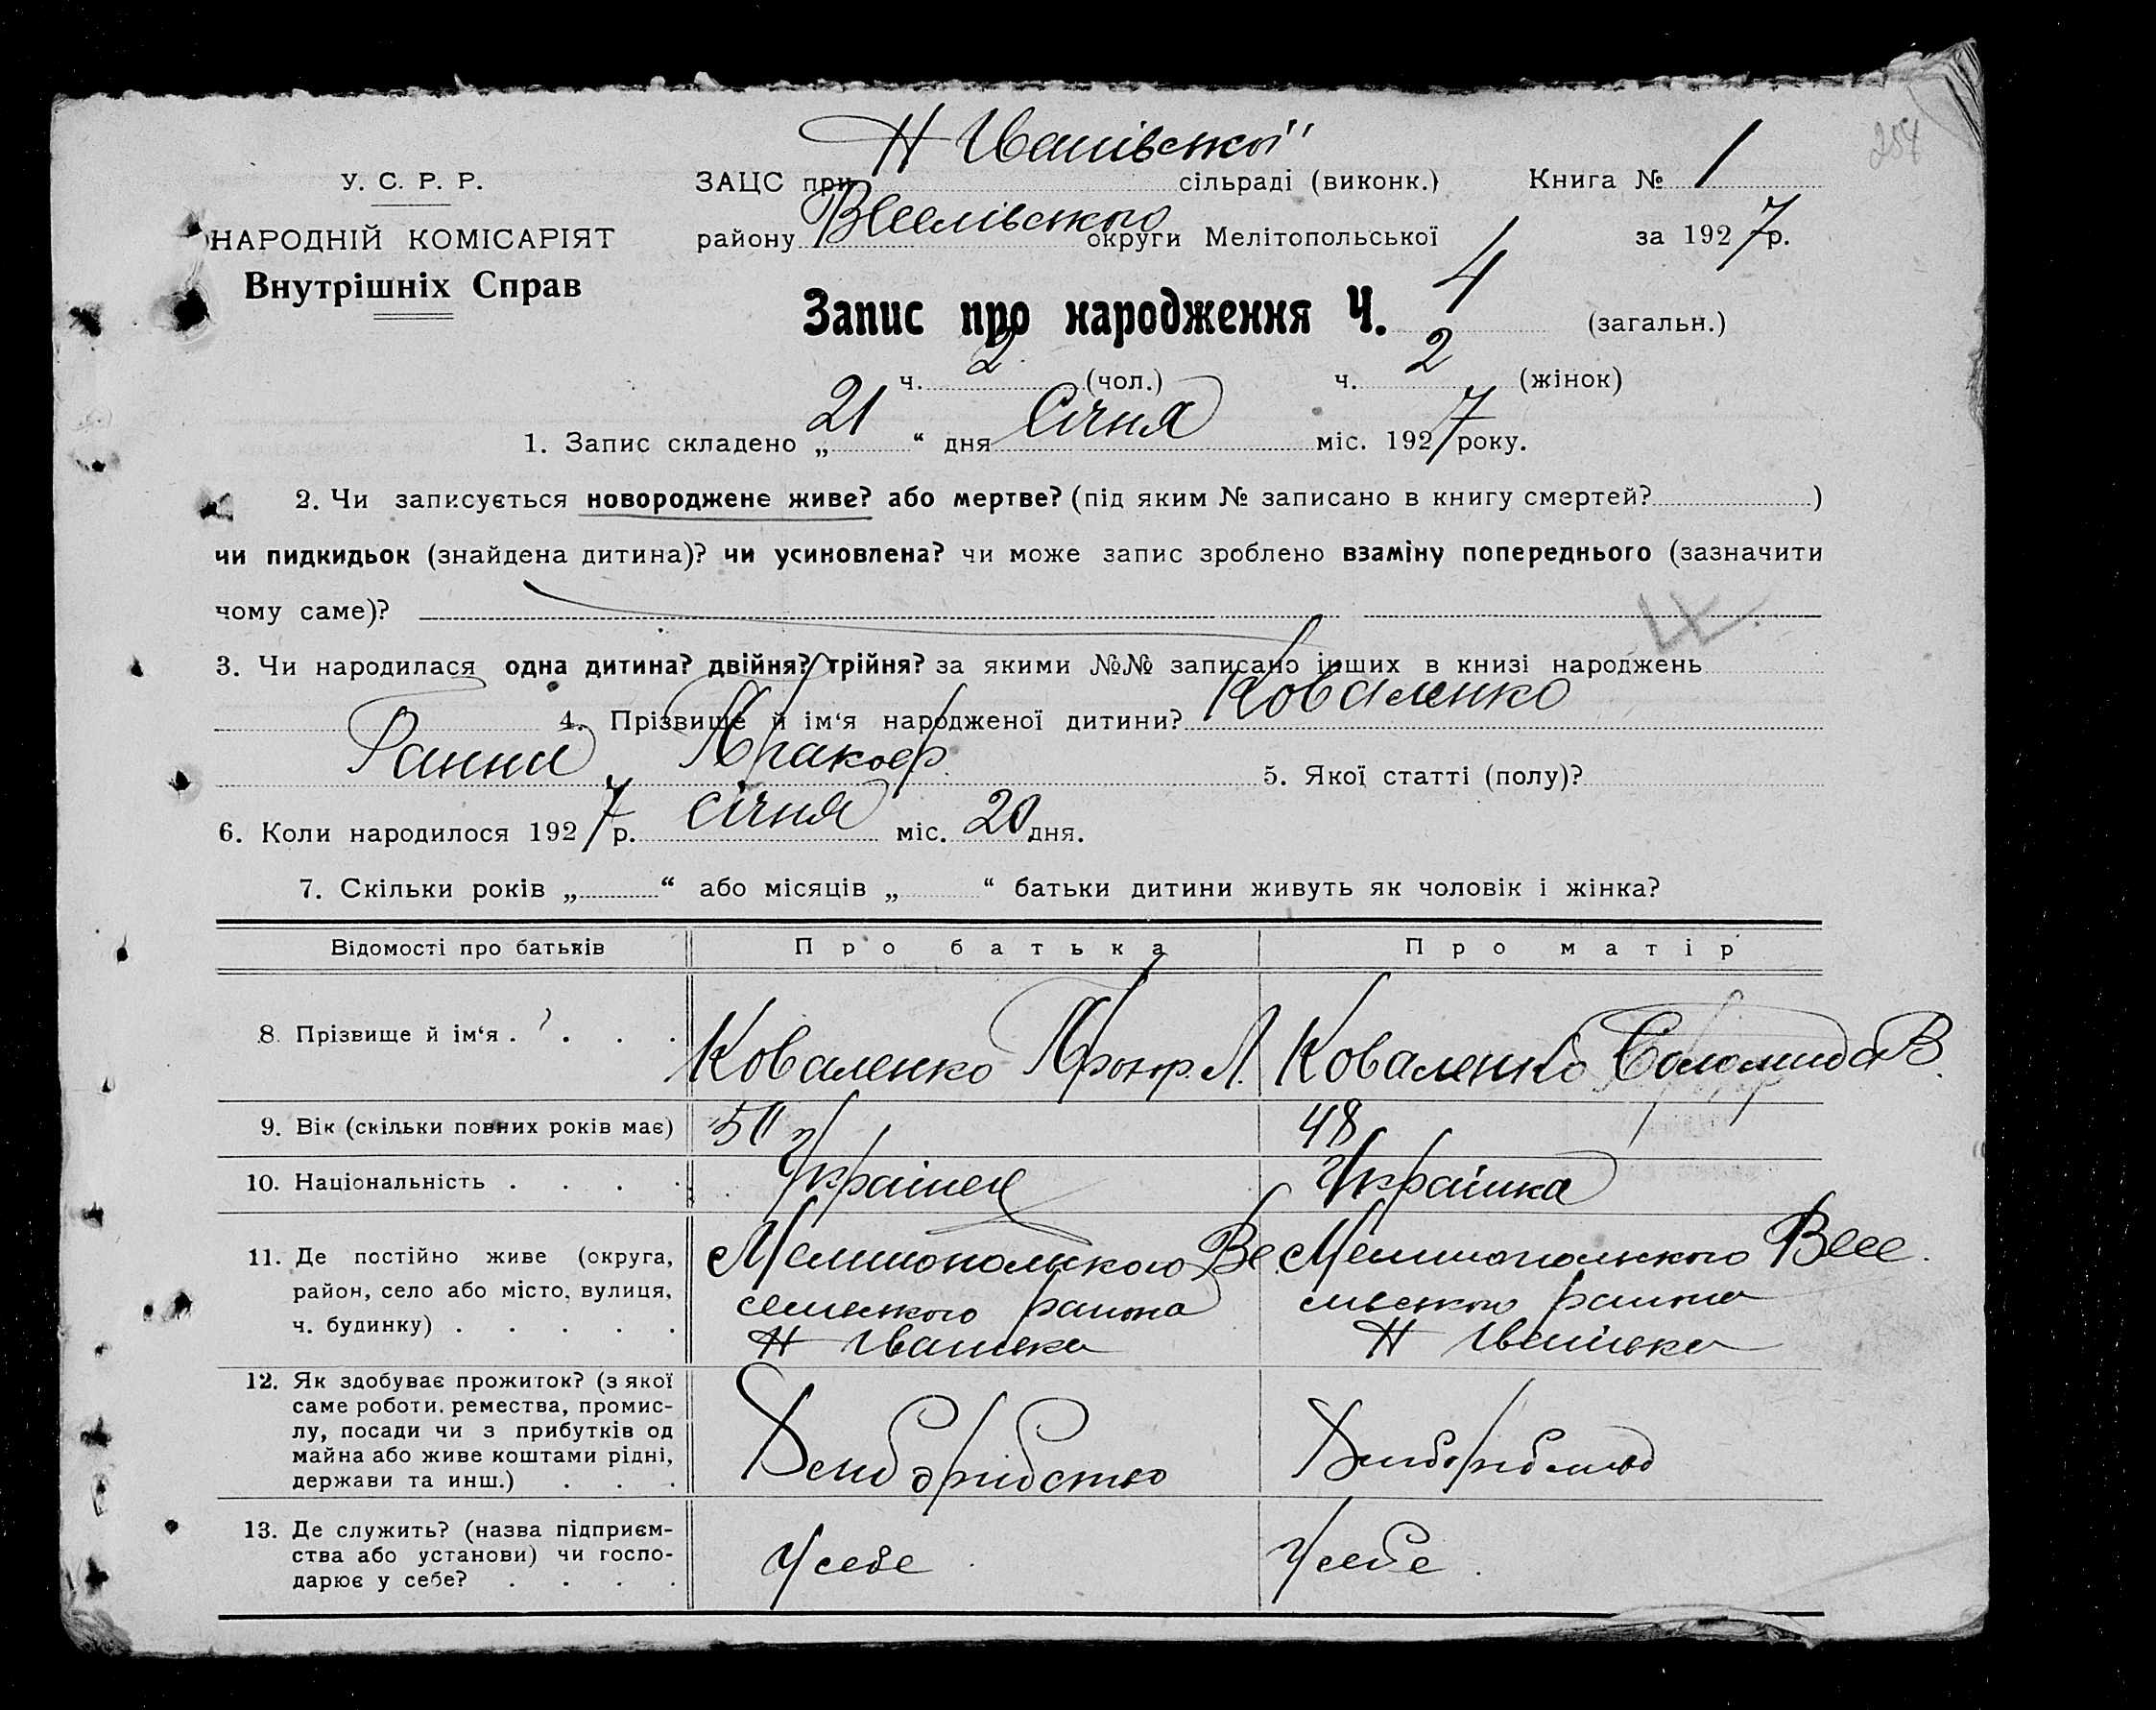 254
Н Іванівській
У. С. Р. Р.
ЗАЦС при сільраді (виконк.) Книга № 1
НАРОДНІЙ КОМІСАРІЯТ
району Веселівського округи Мелітопольської за 1927 р.
Внутрішніх Справ
Запис про народження Ч. 4 (загальн.)
ч. 2 (чол.) ч. 2 (жінок)
1. Запис складено „21“ дня Січня міс. 1927 року.
2. Чи записується новороджене живе? або мертве? (під яким № записано в книгу смертей? )
чи пидкидьок (знайдена дитина)? чи усиновлена? чи може запис зроблено взаміну попереднього (зазначити
чому саме)?
3. Чи народилася одна дитина? двійня? трійня? за якими №№ записано інших в книзі народжень
4. Прізвище й ім‘я народженої дитини? Коваленко
Ганна 5. Якої статті (полу)?
6. Коли народилося 1927 р. січня міс. 20 дня.
7. Скільки років „ “ або місяців „ “ батьки дитини живуть як чоловік і жінка?
Відомості про батьків Про батька Про матір
8. Прізвище й ім‘я . . . . Коваленко Коваленко Соломида В.
9. Вік (скільки повних років має) 48
10. Національність . . . . Украінец Украінка
11. Де постійно живе (округа,
район, село або місто, вулиця,
ч. будинку) . . . . .
Н Іванівка Н Іванівка
12. Як здобуває прожиток? (з якої
саме роботи, ремества, промис-
лу, посади чи з прибутків од
майна або живе коштами рідні,
держави та инш.) . . .
13. Де служить? (назва підприєм-
ства або установи) чи госпо-
дарює у себе? . . . .
У себе У себе